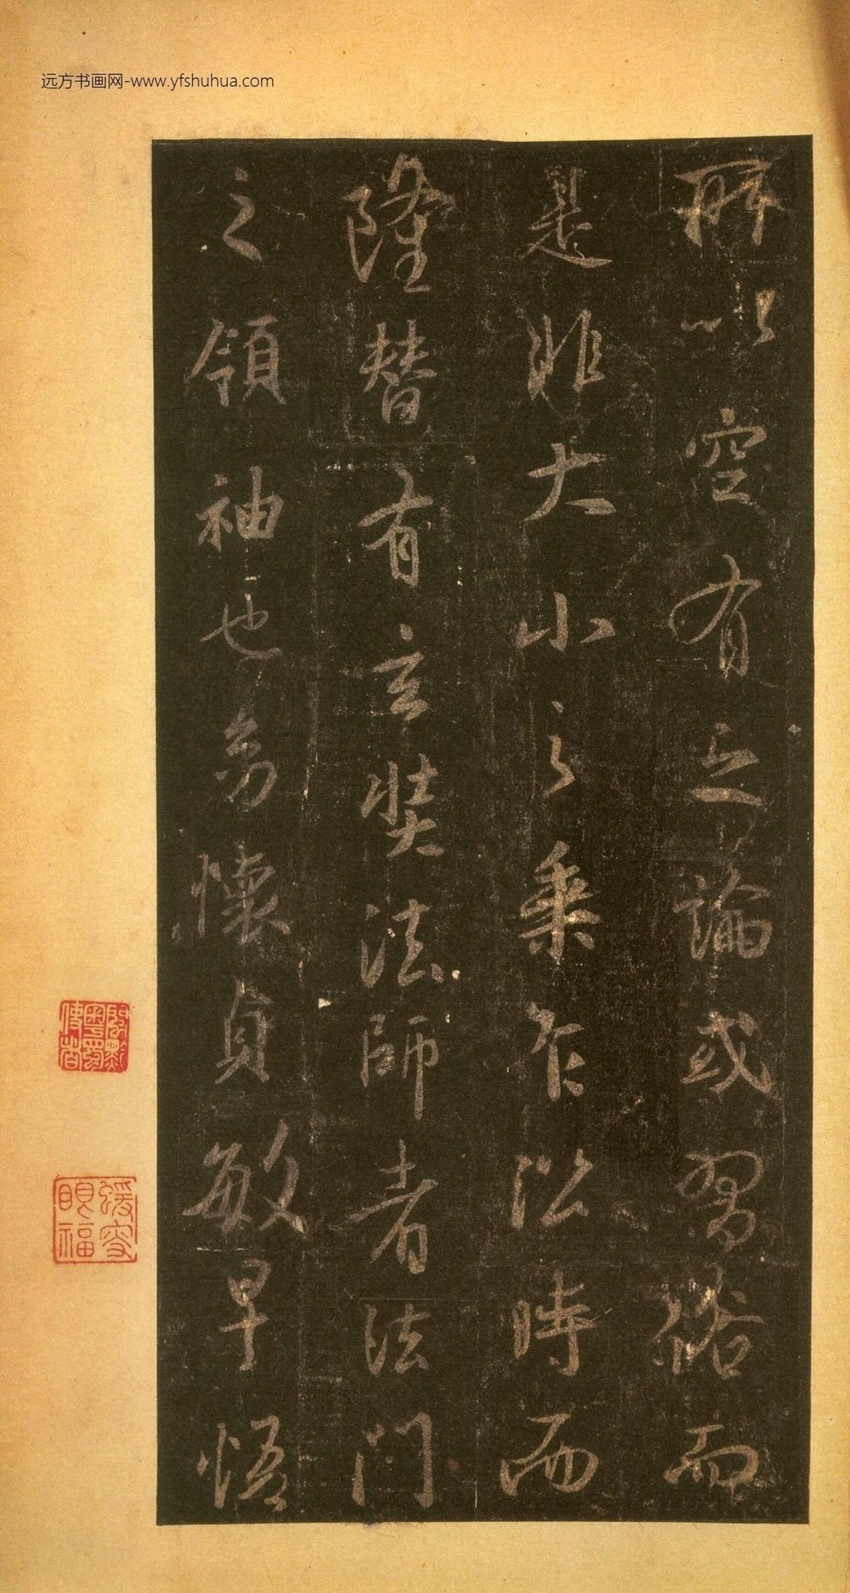 远方书画网-www.yfshuhua.com
所以空有之論或習俗而
是非大小之乘乍沿時而
隆替有玄奘法師者法門
之領袖也幼懷貞敏早悟